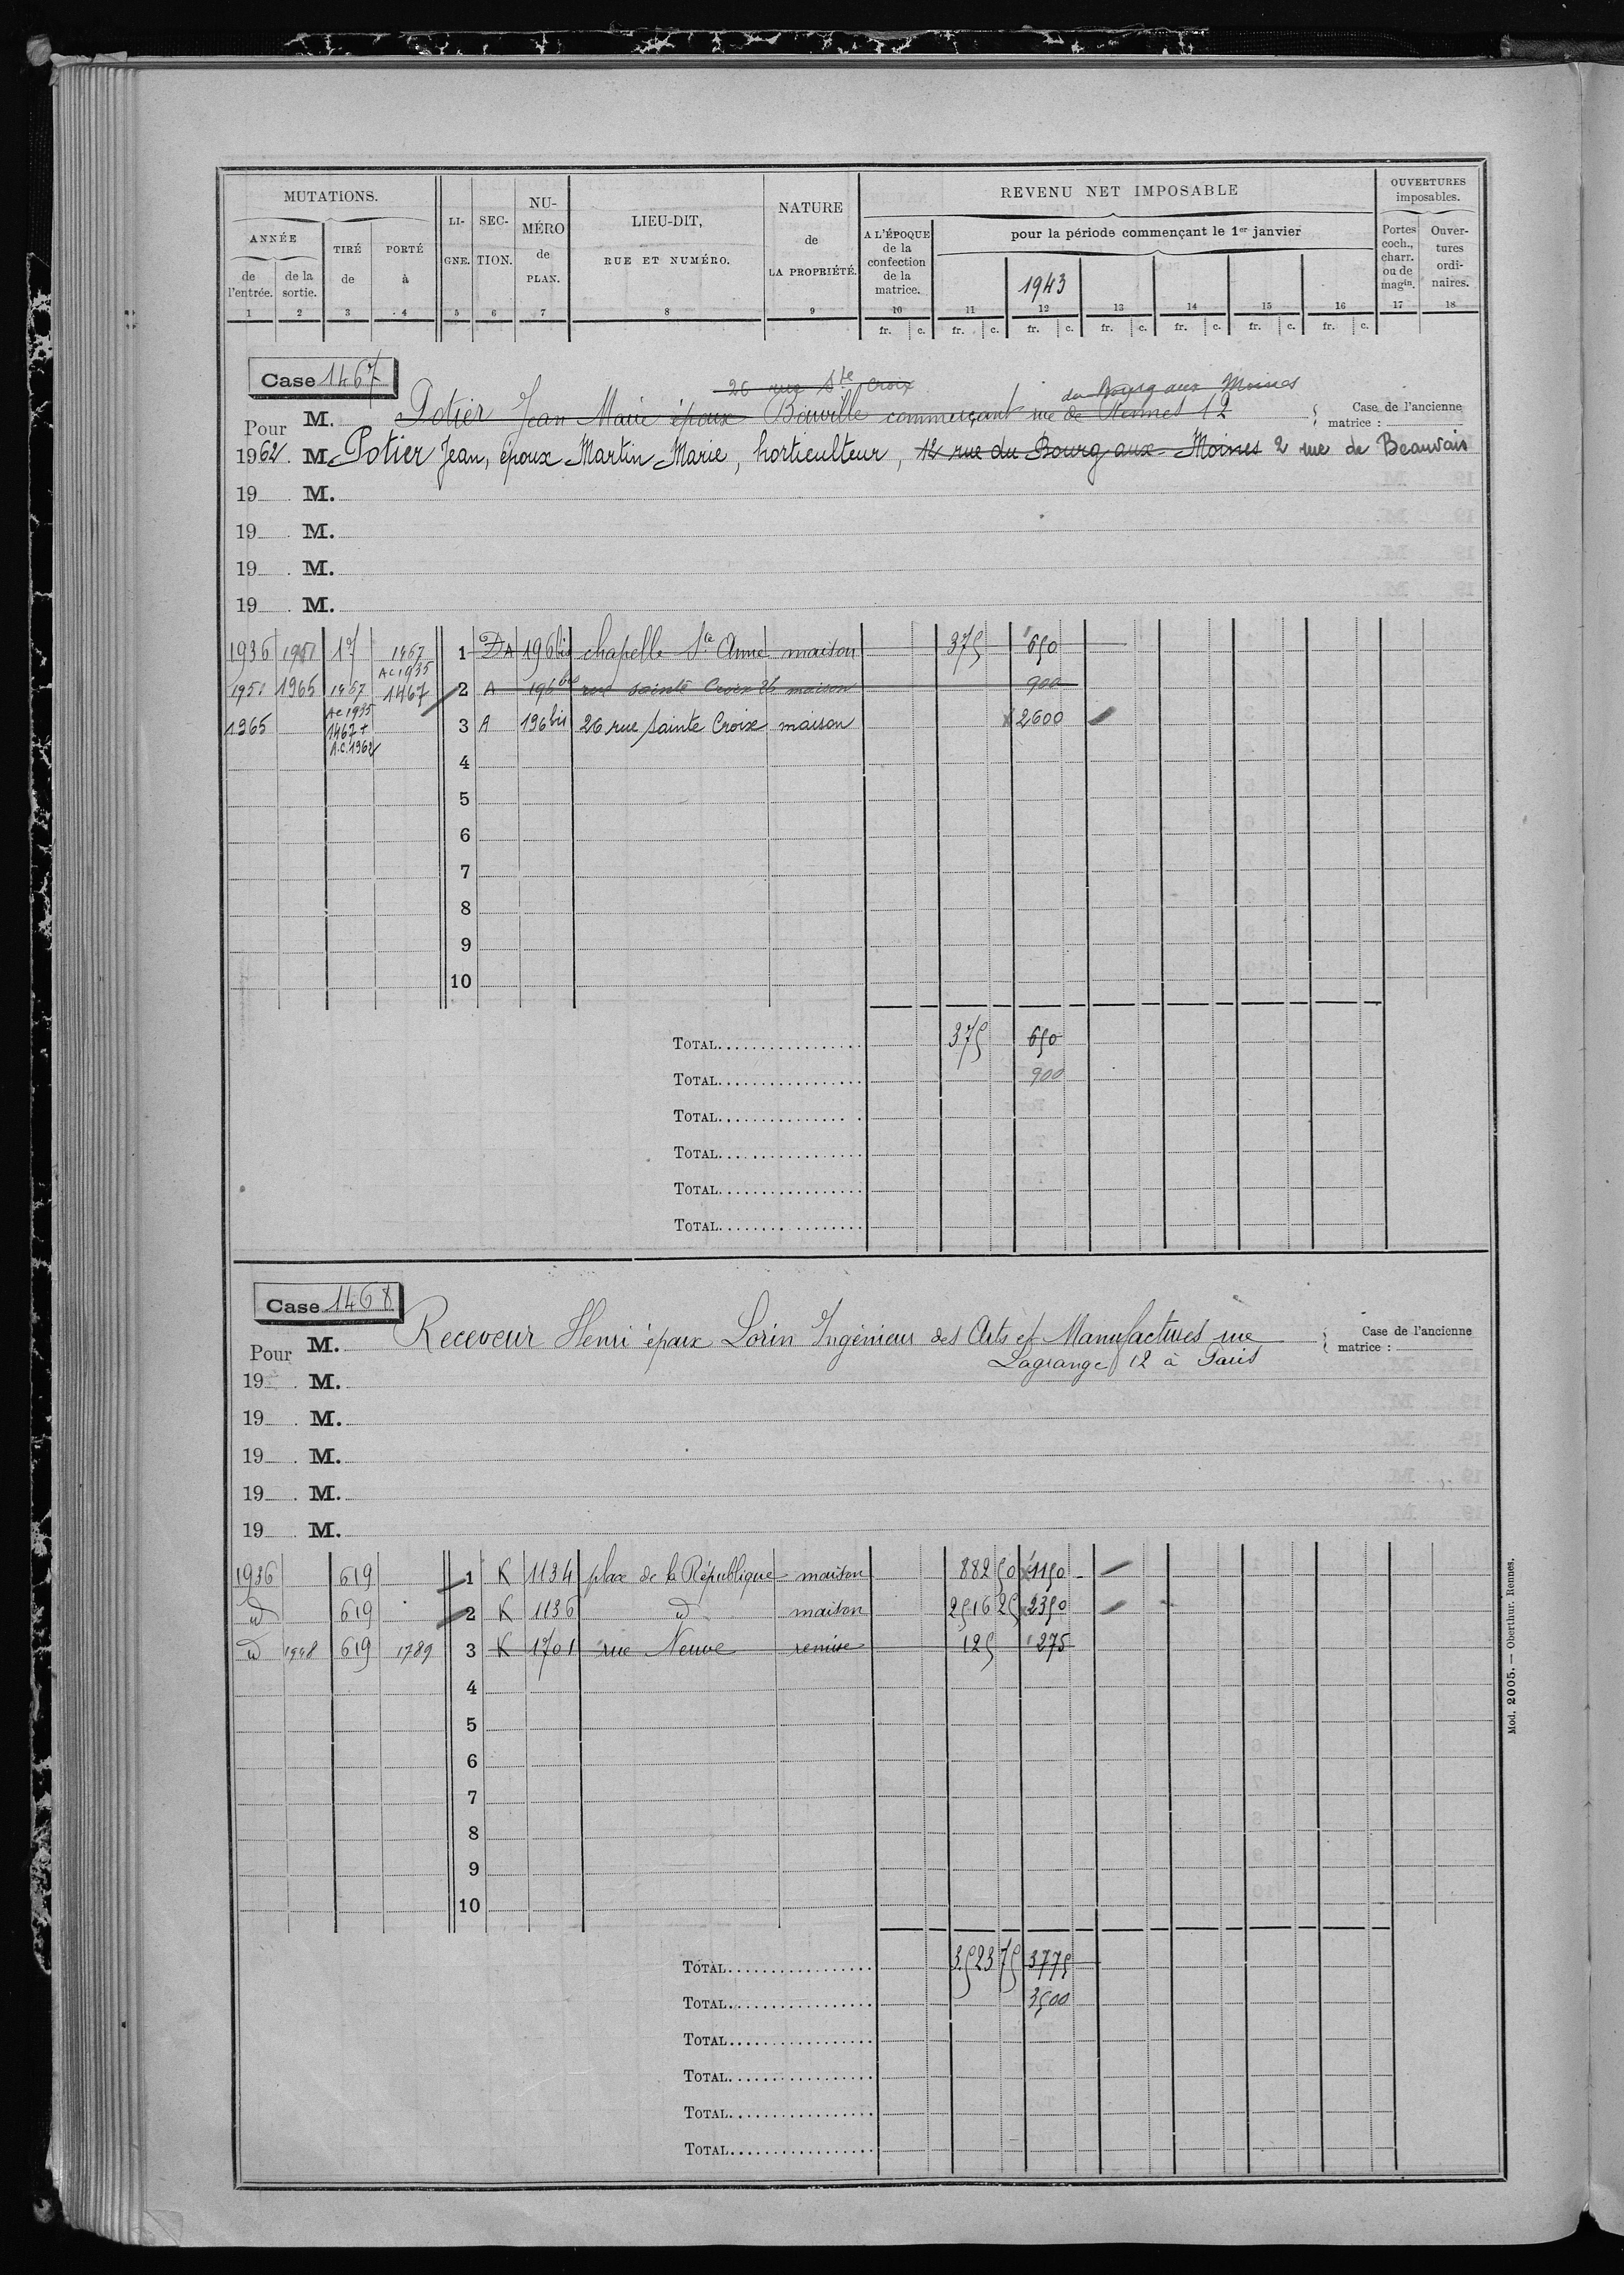 MUTATIONS. LI-GNE. SEC-TION. NU-MÉRO de PLAN. LIEU-DIT, RUE ET NUMÉRO. NATURE de LA PROPRIÉTÉ. REVENU NET IMPOSABLE OUVERTURES imposables.
ANNÉE de l'entrée. de la sortie. TIRÉ de PORTÉ à A L'ÉPOQUE de la confection de la matrice. pour la période commençant le 1er janvier Portes coch., charr. ou de magin. Ouver-tures ordi-naires.
1943
1 2 3 4 5 6 7 8 9 10 11 12 13 14 15 16 17 18
fr. c. fr. c. fr. c. fr. c. fr. c. fr. c. fr. c.
Case 1467
26 rue Ste Croix du Bourg aux Moines
Pour M. Potier Jean Marie époux commerçant rue de Rennes 12 Case de l'ancienne matrice :
1962. M. Potier Jean, époux Martin Marie, horticulteur, 12 rue du Bourg aux Moines 2 rue de Beauvais
19 . M.
19 . M.
19 . M.
19 . M.
1936 1951 1467 Ac 1935 1 DA 196 bis chapelle Ste Anne maison 375 650
1951 1965 1467 Ac 1935 1467 2 A 196 bis rue sainte Croix 26 maison 900
1965 1467 + A.C. 1962 3 A 196 bis 26 rue Sainte Croix maison x 2600
4
5
6
7
8
9
10
TOTAL 375 650
TOTAL 900
TOTAL
TOTAL
TOTAL
TOTAL
Case 1468
Pour M. Receveur Henri époux Lorin Ingénieur des Arts et Manufactures rue Case de l'ancienne matrice :
Lagrange 12 à Paris
19 . M.
19 . M.
19 . M.
19 . M.
19 . M.
1936 619 1 K 1134 place de la République maison 882 50 x 1150
d 619 2 K 1136 d maison 2516 25 x 2350
d 1948 619 1789 3 K 1701 rue Neuve remise 125 275
4
5
6
7
8
9
10
TOTAL 3523 75 3775
TOTAL 3500
TOTAL
TOTAL
TOTAL
TOTAL
Mod. 2005. — Oberthur. Rennes.